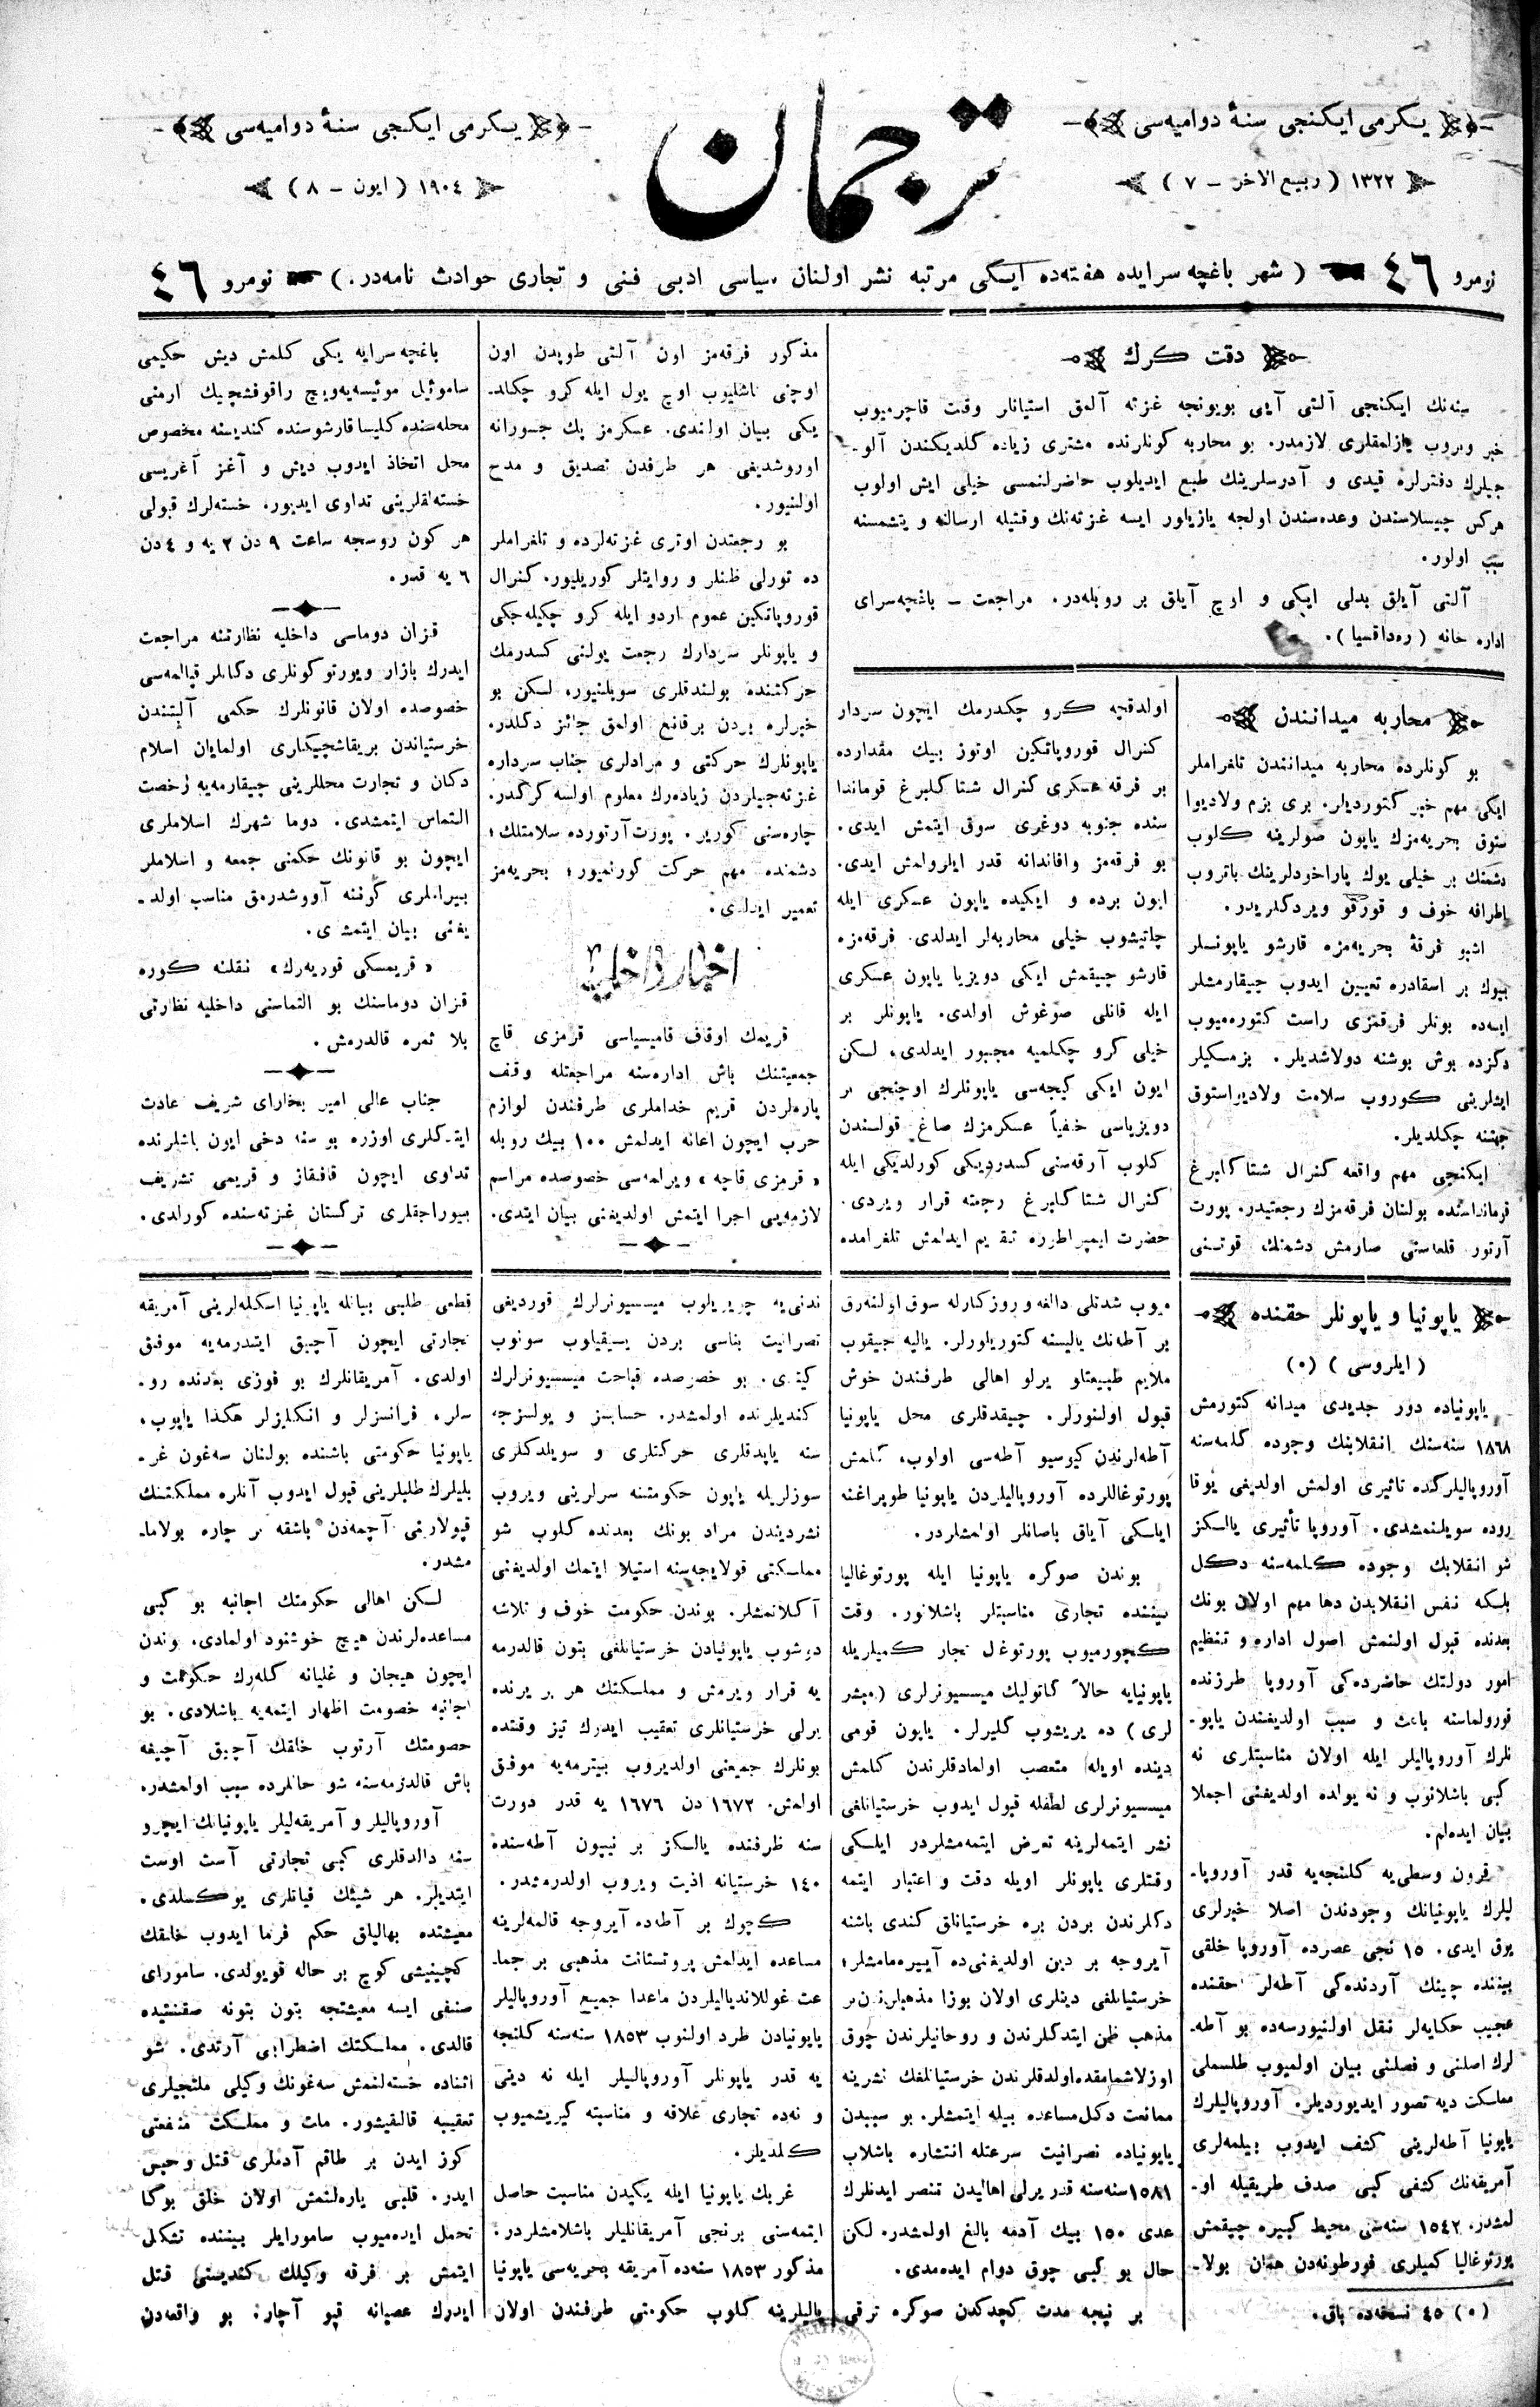 یکرمی ایکنجی سنهٔ دوامیه‌سی
۱۳۲۲ ( ربیع الاخر ــ ۷ )
ترجمان
یکرمی ایکنجی سنهٔ دوامیه‌سی
۱۹۰٤ ( ایون ــ ۸ )
نومرو ٤٦ ( شهر باغچه سرایده هفته‌ده ایکی مرتبه نشر اولنان سیاسی ادبی فنی و تجاری حوادث نامه‌در. ) نومرو ٤٦
دقت كرك
سنه‌نك ایکنجی آلتی آیی بویونجه غزته آلمق استیانلر وقت قاچرمیوب
خبر ویروب یازلمقلری لازمدر. بو محاربه کونلرنده مشتری زیاده کلدیکندن آلو-
جیلرك دفترلره قیدی و آدرسلرینك طبع ایدیلوب حاضرلنمسی خیلی ایش اولوب
هرکس چیسلاسندن وعده‌سندن اولجه یازیلور ایسه غزته‌نك وقتیله ارسالنه و یتشمسنه
سبب اولور.
آلتی آیلق بدلی ایکی و اوچ آیلق بر روبله‌در. مراجعت ــ باغچه‌سرای
اداره خانه ( ره‌داقسیا ).
محاربه میدانندن
بو کونلرده محاربه میدانندن تلغراملر
ایکی مهم خبر کتوردیلر. بری بزم ولادیوا
ستوق بحریه‌مزك یاپون صولرینه کلوب
دشمنك بر خیلی یوك پاراخودلرینك باتروب
اطرافه خوف و قورقو ویردکلریدر.
اشبو فرقهٔ بحریه‌مزه قارشو یاپونلر
بیوك بر اسقادره تعیین ایدوب چیقارمشلر
ایسه‌ده بونلر فرقمزی راست کتوره‌میوب
دکزده بوش بوشنه دولاشدیلر. بزمکیلر
ایشلرینی کوروب سلامت ولادیواستوق
جهتنه چکلدیلر.
ایکنجی مهم واقعه کنرال شتاکلبرغ
قوماندا‌سنده بولنان فرقه‌مزك رجعتیدر. پورت
آرتور قلعه‌سنی صارمش دشمنك قوتنی
اولدقچه کرو چکدرمك ایچون سردار
کنرال قوروپاتکین اوتوز بیك مقدارده
بر فرقه عسکری کنرال شتاکلبرغ قوماندا
سنده جنوبه دوغری سوق ایتمش ایدی.
بو فرقه‌مز وافاندانه قدر ایلرولمش ایدی.
ایون برده و ایکیده یاپون عسکری ایله
چاتیشوب خیلی محاربه‌لر ایدلدی. فرقه‌مزه
قارشو چیقمش ایکی دویزیا یاپون عسکری
ایله قانلی صوغوش اولدی. یاپونلر بر
خیلی کرو چکلمیه مجبور ایدلدی، لکن
ایون ایکی کیجه‌سی یاپونلرك اوچنجی بر
دویزیاسی خفیاً عسکرمزك صاغ قولندن
کلوب آرقه‌سنی کسدردیکی کورلدیکی ایله
کنرال شتاکلبرغ رجعته قرار ویردی.
حضرت ایمپراطوره تقدیم ایدلمش تلغرامده
مذکور فرقه‌مز اون آلتی طوپدن اون
اوچنی تاشلیوب اوچ یول ایله کرو چکلد-
یکی بیان اولندی. عسکرمز پك جسورانه
اوروشدیغی هر طرفدن تصدیق و مدح
اولنیور.
بو رجعتدن اوتری غزته‌لرده و تلغراملر
ده تورلی ظنلر و روایتلر کوریلیور. کنرال
قوروپاتکین عموم اردو ایله کرو چکیله‌جکی
و یاپونلر سردارك رجعت یولنی کسدرمك
حرکتنده بولندقلری سویلنیور، لکن بو
خبرلره بردن برقانع اولمق جائز دکلدر.
یاپونلرك حرکتی و مرادلری جناب سرداره
غزته‌جیلردن زیاده‌رك معلوم اولسه کرکدر.
چاره‌سنی کوریر. پورت آرتورده سلامتلك؛
دشمنده مهم حرکت کورنمیور؛ بحریه‌مز
تعمیر ایدلدی.
اخبار داخلیه
قریمك اوقاف قامیسیاسی قرمزی قاچ
جمعیتنك باش اداره‌سنه مراجعتله وقف
پاره‌لردن قریم خداملری طرفندن لوازم
حرب ایچون اعانه ایدلمش ۱۰۰ بیك روبله
« قرمزی قاچه » ویرلمه‌سی خصوصده مراسم
لازمه‌یی اجرا ایتمش اولدیغنی بیان ایتدی.
باغچه‌سرایه یکی کلمش دیش حکیمی
ساموئیل موئیسه‌یه‌ویچ راقوفشچیك ارمنی
محله‌سنده کلیسا قارشوسنده کندیسنه مخصوص
محل اتخاذ ایدوب دیش و آغز آغریسی
خسته‌لقلرینی تداوی ایدیور. خسته‌لرك قبولی
هر کون روسجه ساعت ۹ دن ۲ یه و ٤ دن
٦ یه قدر.
قزان دوماسی داخلیه نظارتنه مراجعت
ایدرك بازار و یورتو کونلری دکانلر قپالمه‌سی
خصوصده اولان قانونلرك حکمی آلتندن
خرستیاندن بریقاشچیکلری اولمایان اسلام
دکان و تجارت محللرینی چیقارمه‌یه رخصت
التماس ایتمشدی. دوما شهرك اسلاملری
ایچون بو قانونك حکمنی جمعه و اسلاملر
بیراملری کوننه آووشدرمق مناسب اولد-
یغنی بیان ایتمشدی.
« قریمسکی قوریه‌رك » نقلنه کوره
قزان دوماسنك بو التماسنی داخلیه نظارتی
بلا ثمره قالدرمش.
جناب عالی امیر بخارای شریف عادت
ایتدکلری اوزره بو سنه دخی ایون باشلرنده
تداوی ایچون قافقاز و قریمی تشریف
بیوراجقلری ترکستان غزته‌سنده کورلدی.
یاپونیا و یاپونلر حقنده
( ایلروسی ) (٠)
یاپونیاده دور جدیدی میدانه کتورمش
۱۸٦۸ سنه‌سنك انقلابنك وجوده کلمه‌سنه
آوروپالیلرکده تاثیری اولمش اولدیغی یوقا
روده سویلنمشدی. آوروپا تأثیری یالکز
شو انقلابك وجوده کلمه‌سنه دکل
بلکه نفس انقلابدن دها مهم اولان بونك
بعدنده قبول اولنمش اصول اداره و تنظیم
امور دولتك حاضرده‌کی آوروپا طرزنده
قورولماسنه باعث و سبب اولدیغندن یاپو-
نلرك آوروپالیلر ایله اولان مناسبتلری نه
کبی باشلانوب و نه یولده اولدیغنی اجملا
بیان ایده‌لم.
قرون وسطی‌یه کلنجه‌یه قدر آوروپا-
لیلرك یاپونیانك وجودندن اصلا خبرلری
یوق ایدی. ۱٥ نجی عصرده آوروپا خلقی
بیننده چینك آردنده‌کی آطه‌لر حقنده
عجیب حکایه‌لر نقل اولنیورسه‌ده بو آطه-
لرك اصلنی و فصلنی بیان اولمیوب طلسملی
مملکت دیه تصور ایدیوردیلر. آوروپالیلرك
یاپونیا آطه‌لرینی کشف ایدوب بیلمه‌لری
آمریقه‌نك کشفی کبی صدف طریقیله او-
لمشدر. ۱٥٤۲ سنه‌سی محیط کبیره چیقمش
پورتوغالیا کمیلری فورطونه‌دن همان بولا-
(٠) ٤٥ نسخه‌ده باق.
میوب شدتلی دالغه و روزکارله سوق اولنه‌رق
بر آطه‌نك یالیسنه کتوریلورلر. یالیه چیقوب
ملایم طبیعتلو یرلو اهالی طرفندن خوش
قبول اولنورلر. چیقدقلری محل یاپونیا
آطه‌لرندن کیوسیو آطه‌سی اولوب، کلمش
پورتوغاللرده آوروپالیلردن یاپونیا طوپراغنه
ایلکی آیاق باصانلر اولمشلردر.
بوندن صوکره یاپونیا ایله پورتوغالیا
بیننده تجاری مناسبتلر باشلانور. وقت
کچورمیوب پورتوغل تجار کمیلریله
یاپونیایه حالاً کاتولیك میسسیونرلری (مبشر
لری) ده یریشوب کلیرلر. یاپون قومی
دینده اویله متعصب اولمادقلرندن کلمش
میسسیونرلری لطفله قبول ایدوب خرستیانلغی
نشر ایتمه‌لرینه تعرض ایتمه‌مشلردر ایلکی
وقتلری یاپونلر اویله دقت و اعتبار ایتمه
دکلرندن بردن بره خرستیانلق کندی باشنه
آیروجه بر دین اولدیغنی‌ده آییره‌مامشلر؛
خرستیانلغی دینلری اولان بوزا مذهبلرندن بر
مذهب ظن ایتدکلرندن و روحانیلرندن چوق
اوزلاشمامقده اولدقلرندن خرستیانلغك نشرینه
ممانعت دکل مساعده بیله ایتمشلر. بو سببدن
یاپونیاده نصرانیت سرعتله انتشاره باشلاب
۱٥۸۱ سنه‌سنه قدر یرلی اهالیدن تنصر ایدنلرك
عددی ۱٥۰ بیك آدمه بالغ اولمشدر. لکن
حال بو کبی چوق دوام ایده‌مدی.
بر نیجه مدت کچدکدن صوکره ترقی
ندنی‌یه چویریلوب میسسیونرلرك قوردیغی
نصرانیت بناسی بردن یسیقیلوب سونوب
کیتدی. بو خصوصده قباحت میسسیونرلرك
کندیلرنده اولمشدر. حسابسز و یولسزجه-
سنه یاپدقلری حرکتلری و سویلدکلری
سوزلریله یاپون حکومتنه سرلرینی ویروب
نشردیندن مراد بونك بعدنده کلوب شو
مملکتی قولایجه‌سنه استیلا ایتمك اولدیغنی
آکلانمشلر. بوندن حکومت خوف و تلاشه
دوشوب یاپونیادن خرستیانلغی بتون قالدرمه
یه قرار ویرمش و مملکتك هر بر یرنده
یرلی خرستیانلری تعقیب ایدرك تیز وقتده
بونلرك جمیعنی اولدیروب بیترمه‌یه موفق
اولمش. ۱٦۷۲ دن ۱٦۷٦ یه قدر دورت
سنه ظرفنده یالکز بر نیپون آطه‌سنده
۱٤۰ خرستیانه اذیت ویروب اولدرمشدر.
کچوك بر آطه‌ده آیروجه قالمه‌لرینه
مساعده ایدلمش پروتستانت مذهبی بر جما-
عت غوللاندیالیلردن ماعدا جمیع آوروپالیلر
یاپونیادن طرد اولنوب ۱۸٥۳ سنه‌سنه کلنجه
یه قدر یاپونلر آوروپالیلر ایله نه دینی
و نه‌ده تجاری علاقه و مناسبته کیریشمیوب
کلمدیلر.
غربك یاپونیا ایله یکیدن مناسبت حاصل
ایتمه‌سنی برنجی آمریقانلیلر باشلامشلردر.
مذکور ۱۸٥۳ سنه‌ده آمریقه بحریه‌سی یاپونیا
یالیلرینه کلوب حکومتی طرفندن اولان
قطعی طلبی بیانله یاپونیا اسکله‌لرینی آمریقه
تجارتی ایچون آچیق ایتدرمه‌یه موفق
اولدی. آمریقانلرك بو فوزی بعدنده رو-
سلر، فرانسزلر و انکلیزلر هکذا یاپوب،
یاپونیا حکومتی باشنده بولنان سه‌غون غر-
بلیلرك طلبلرینی قبول ایدوب آنلره مملکتنك
قپولارینی آچمه‌دن باشقه بر چاره بولاما-
مشدر.
لکن اهالی حکومتك اجانبه بو کبی
مساعده‌لرندن هیچ خوشنود اولمادی. بوندن
ایچون هیجان و غلیانه کله‌رك حکومت و
اجانبه خصومت اظهار ایتمه‌یه باشلادی. بو
خصومتك آرتوب خلقك آچیق آچیغه
باش قالدرمه‌سنه شو حاللرده سبب اولمشدر.
آوروپالیلر و آمریقه‌لیلر یاپونیانك ایچرو
سنه دالدقلری کبی تجارتی آست اوست
ایتدیلر. هر شیئك قیاتلری یوکسلدی.
معیشتده بهالیلق حکم فرما ایدوب خلقك
کچینیشی کوچ بر حاله قویولدی. سامورای
صنفی ایسه معیشتجه بتون بتونه صقنتیده
قالدی. مملکتك اضطرابی آرتدی. شو
اثناده خسته‌لنمش سه‌غونك وکیلی ملتجیلری
تعقیبه قالقیشور. ملت و مملکت منفعتی
کوز ایدن بر طاقم آدملری قتل و حبس
ایدر. قلبی یاره‌لنمش اولان خلق بوکا
تحمل ایده‌میوب سامورایلر بیننده تشکل
ایتمش بر فرقه وکیلك کندیسنی قتل
ایدرك عصیانه قپو آچار. بو واقعه‌دن